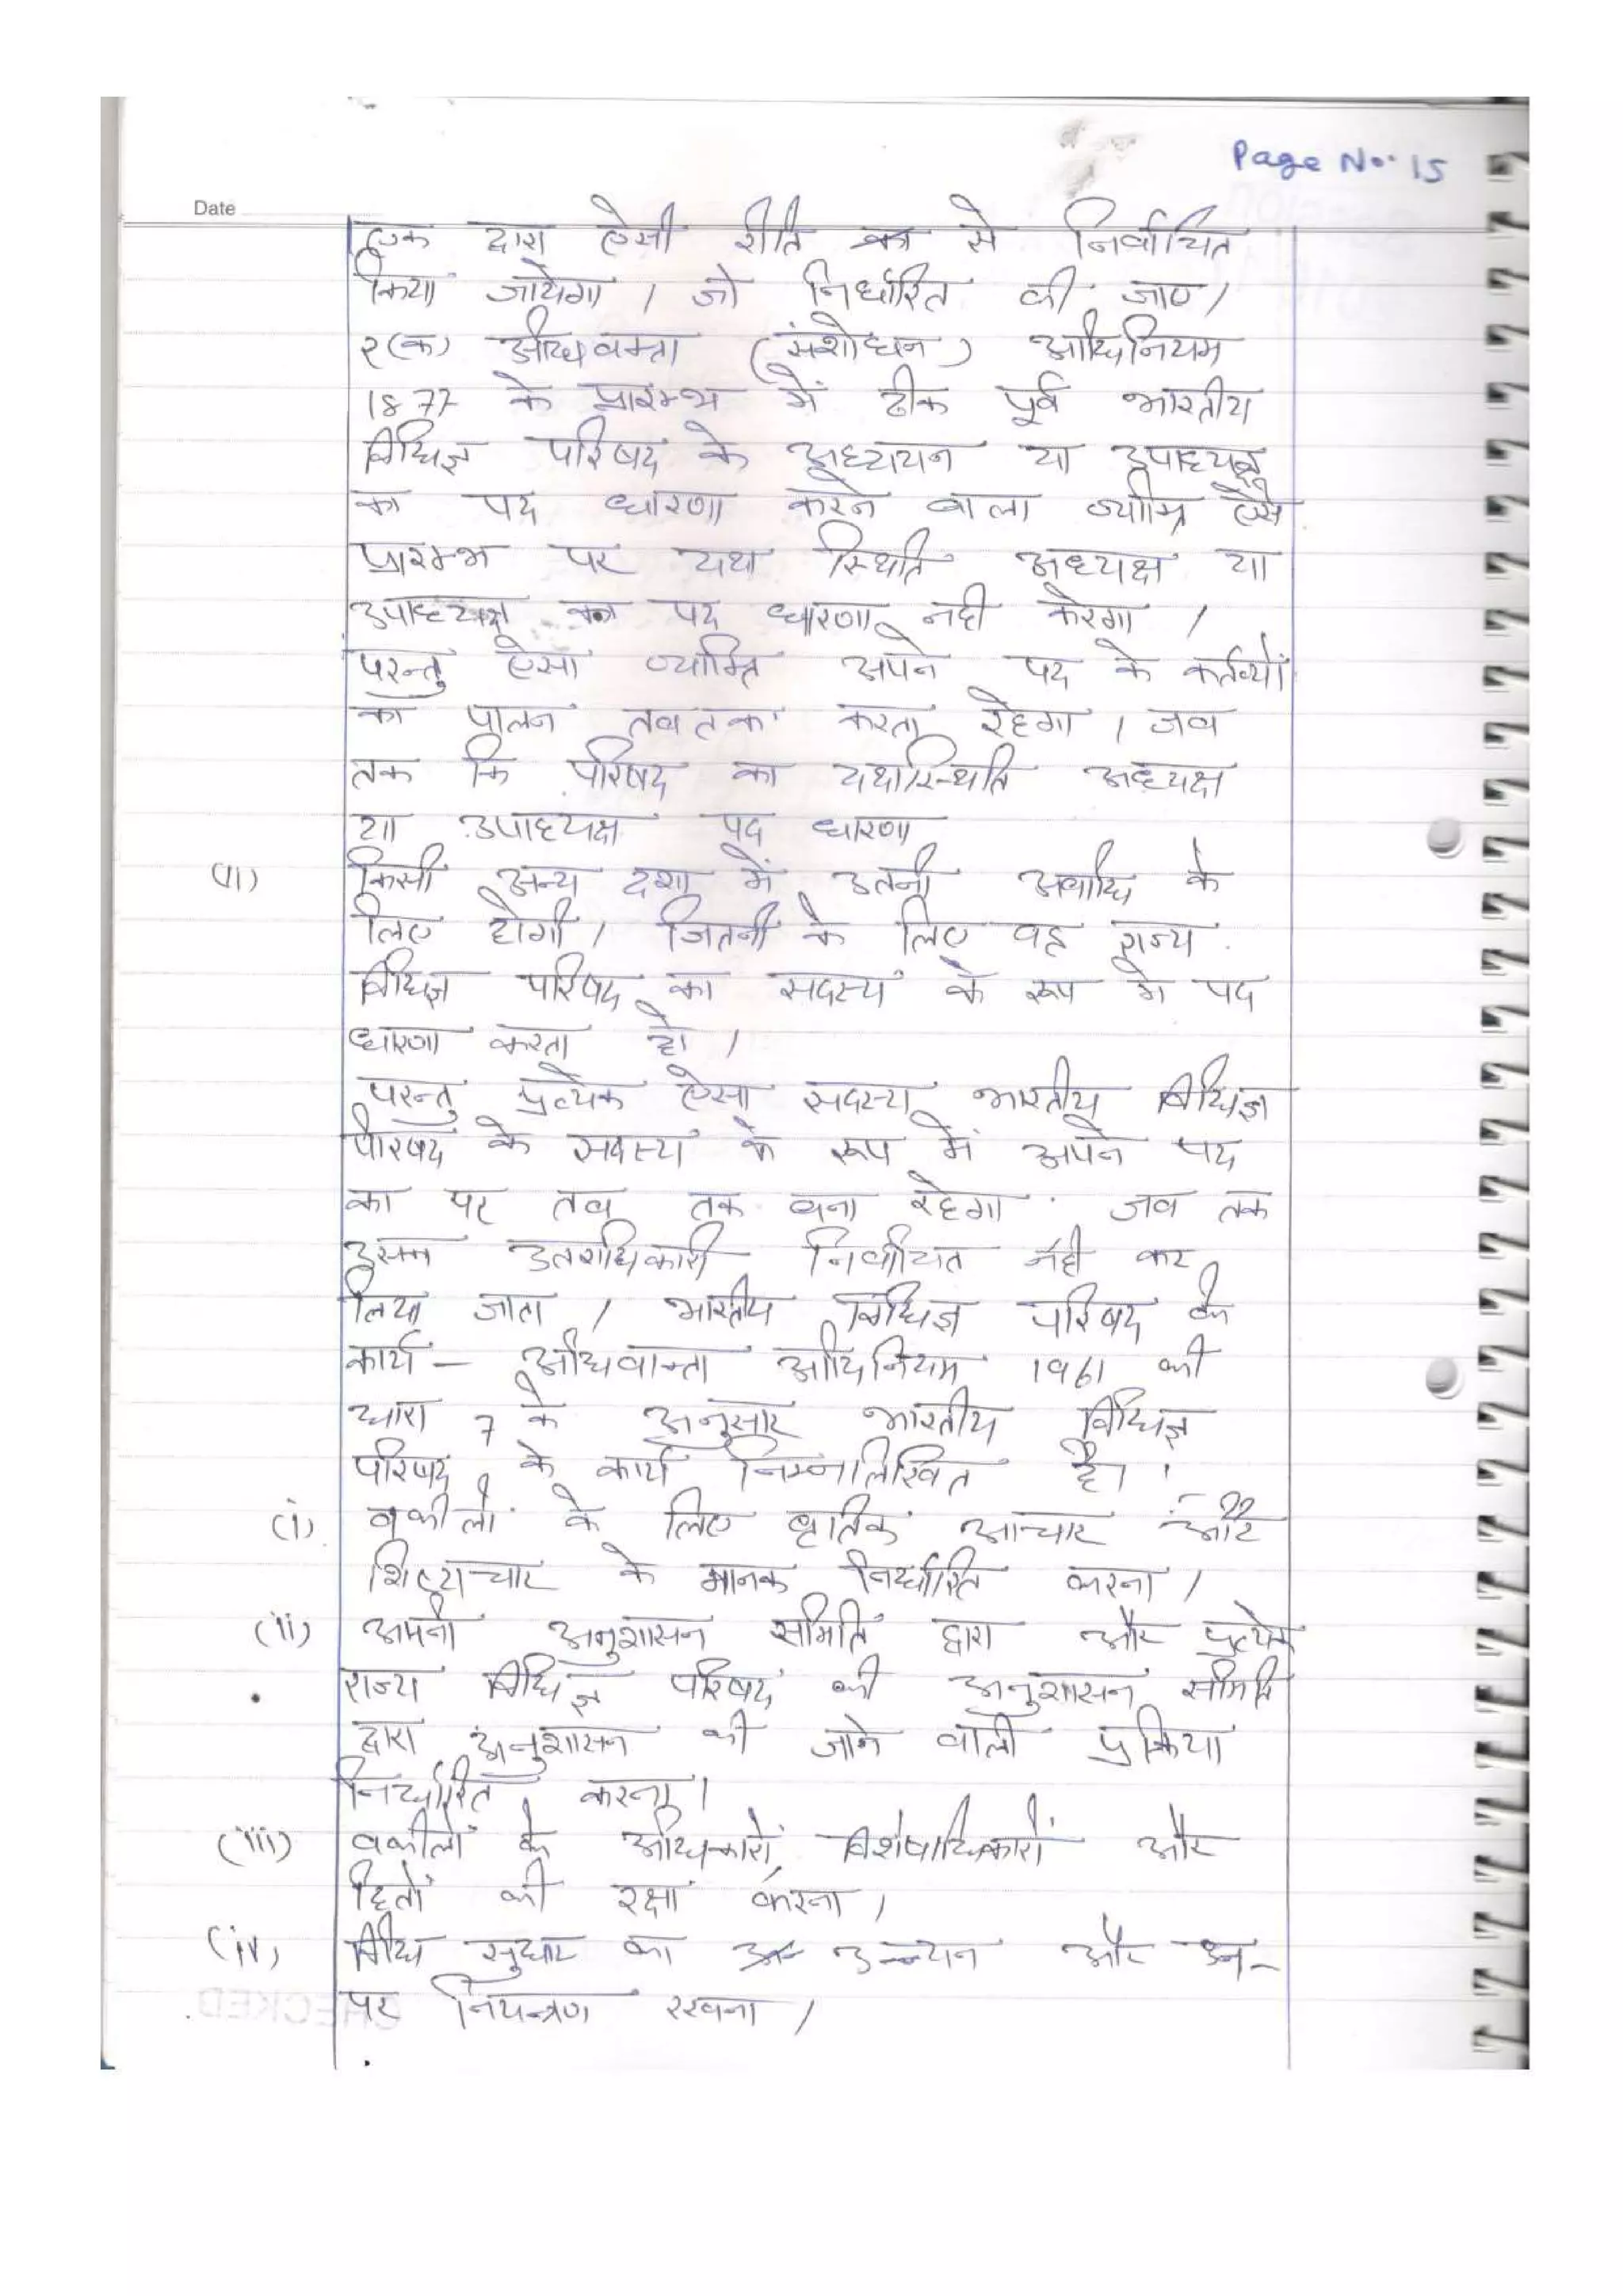 Page No. 15
Date
एक द्वारा ऐसी रीति से निर्वाचित
किया जायेगा। जो निर्धारित की जाए।
२(क) अधिवक्ता (संशोधन) अधिनियम
1877 के प्रारम्भ में ठीक पूर्व भारतीय
विधिज्ञ परिषद के अध्ययन या उपाध्यक्ष
का पद धारणा करने वाला व्यक्ति ऐसे
प्रारम्भ पर यथा स्थिति अध्यक्ष या
उपाध्यक्ष का पद धारणा नही करेगा।
परन्तु ऐसा व्यक्ति अपने पद के कर्तव्यों
का पालन तव तक करता रहेगा। जव
तक कि परिषद का यथास्थिति अध्यक्ष
या उपाध्यक्ष पद धारणा
किसी अन्य दशा में उतनी अवधि के
लिए होगी। जितनी के लिए वह राज्य
विधिज्ञ परिषद का सदस्य के रूप मे पद
धारणा करता हो।
परन्तु प्रत्येक ऐसा सदस्य भारतीय विधिज्ञ
परिषद के सदस्य के रूप में अपने पद
का पर तव तक वना रहेगा जव तक
उसका उतराधिकारी निर्वाचित नही कर
लिया जाता। भारतीय विधिज्ञ परिषद के
कार्य – अधिवक्ता अधिनियम 1961 की
धारा 7 के अनुसार भारतीय विधिज्ञ
परिषद के कार्य निम्नलिखित है।
(i) वकीलों के लिए वृतिक आचार और
शिष्टाचार के मानक निर्धारित करना।
(ii) अपनी अनुशासन समिति द्वारा और प्रत्येक
राज्य विधिज्ञ परिषद की अनुशासन समिति
द्वारा अनुशासन की जाने वाली प्रक्रिया
निर्धारित करना।
(iii) वकीलों के अधिकारों, विशेषाधिकारों और
हितों की रक्षा करना।
(iv) विधि सुधार का उन्नयन और उन-
पर नियन्त्रण रखना।